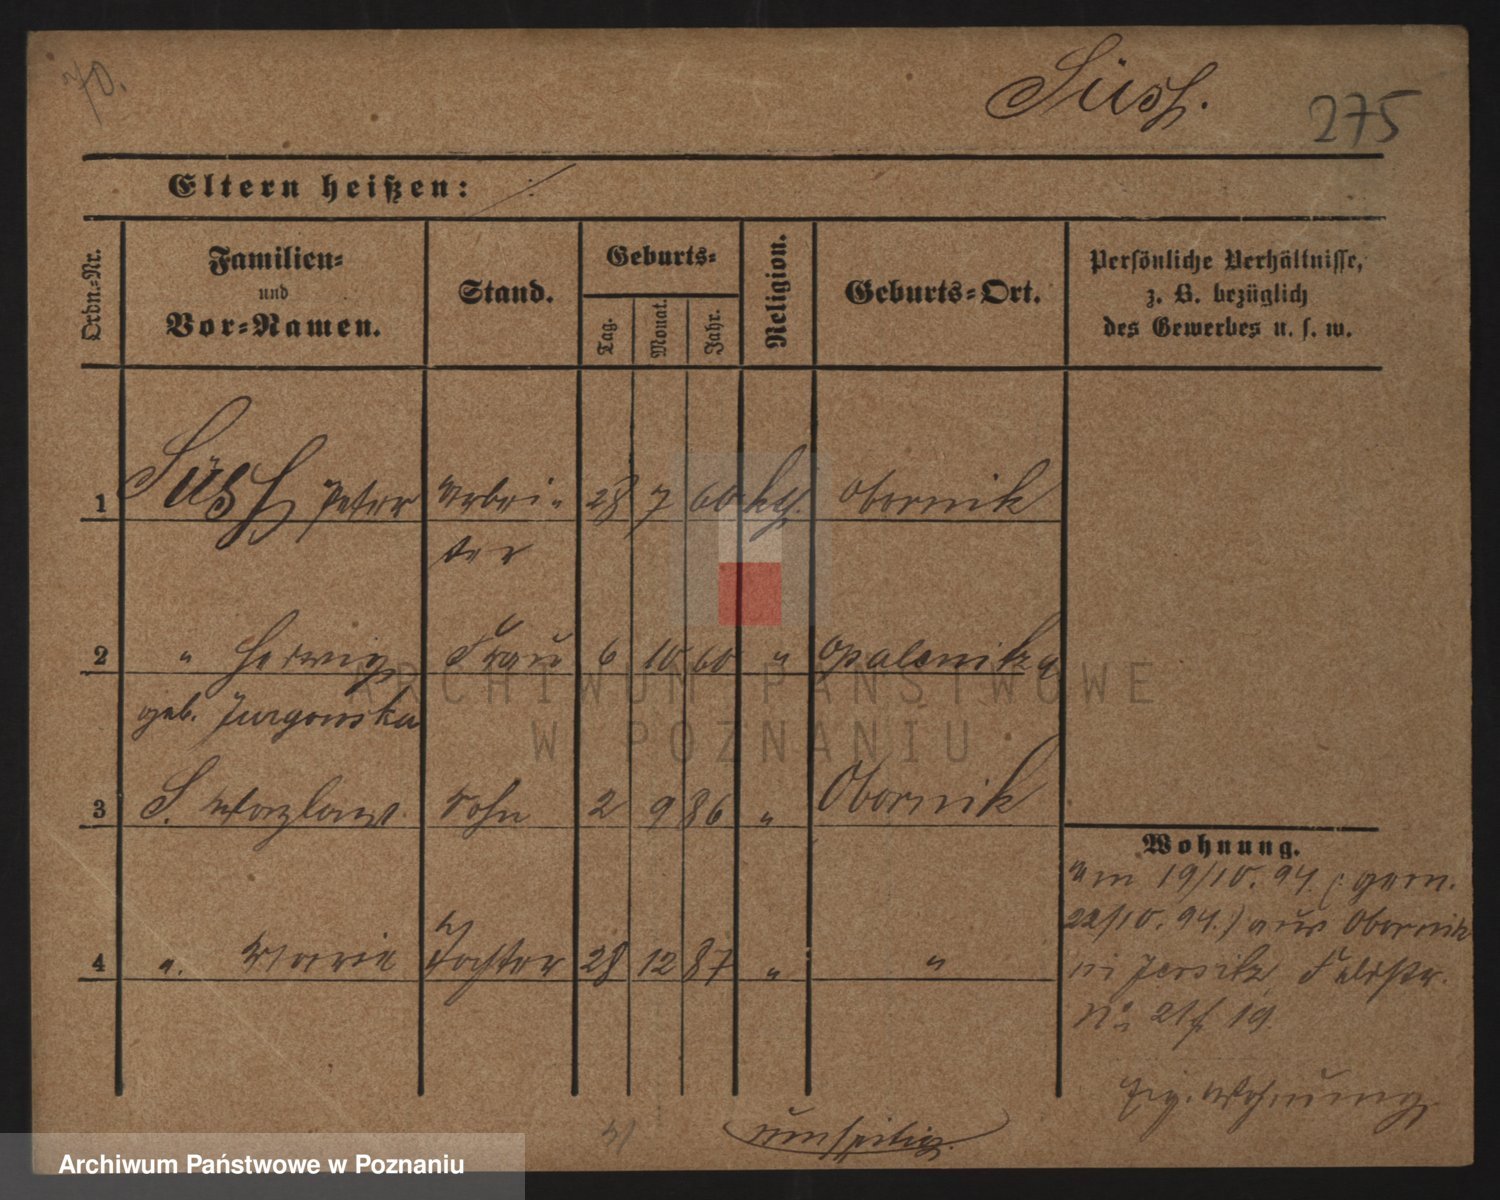 70.
Süsz.
275
Eltern heißen:
Ordn.-Nr.
Familien-
und
Vor-Namen.
Stand.
Geburts-
Tag.
Monat.
Jahr.
Religion.
Geburts-Ort.
Persönliche Verhältnisse,
z. B. bezüglich
des Gewerbes u. s. w.
1 Süsz Peter Arbei- 28 7 60 kth. Obornik
ter
2 " Hedwig Frau 6 10 60 " Opalenitza
geb. Jurgowska
3 S. Wazlaw Sohn 2 9 86 " Obornik
4 " Marie Tochter 28 12 87 " "
Wohnung.
Am 19/10. 94. (: gem.
22/10. 94.) aus Obornik
in Jersitz, Feldstr.
No 21 19.
Eig. Wohnung.
umseitig.
ARCHIWUM PAŃSTWOWE
W POZNANIU
Archiwum Państwowe w Poznaniu